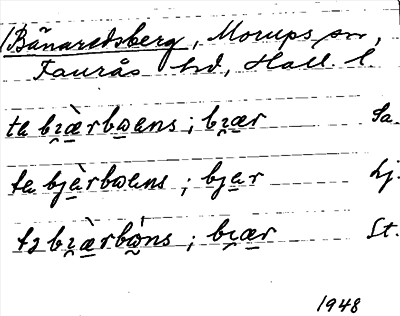 Bänaredsberg, Morups sn,
Faurås hd, Hall. l.
ta bɪ̯æ̀rbωens ; bɪ̯ær Sa.
ta bjæ̀rbωens ; bjær Lj.
tɜ bɪ̯æ̀rbὼns ; bɪ̯ær St.
1948